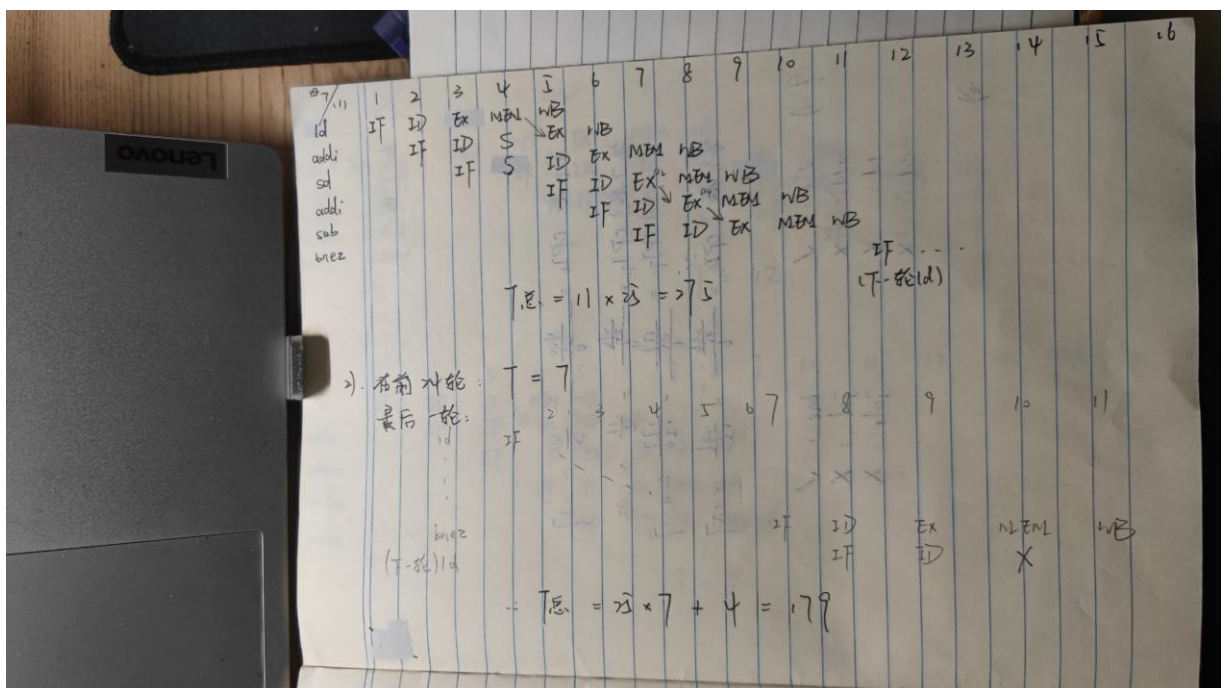 (1) 1 2 3 4 5 6 7 8 9 10 11 12 13 14 15 16
ld IF ID EX MEM WB
addi IF ID S EX WB
sd IF S ID EX MEM WB
addi IF ID EX MEM WB
sub IF ID EX MEM WB
bnez IF ID EX MEM WB
IF ....
(下一轮ld)
T总 = 11 × 25 = 275
2). 在前24轮: T = 7
最后一轮: 2 3 4 5 6 7 8 9 10 11
ld IF
bnez IF ID EX MEM WB
(下一轮)ld IF ID X
T总 = 25 × 7 + 4 = 179
Lenovo